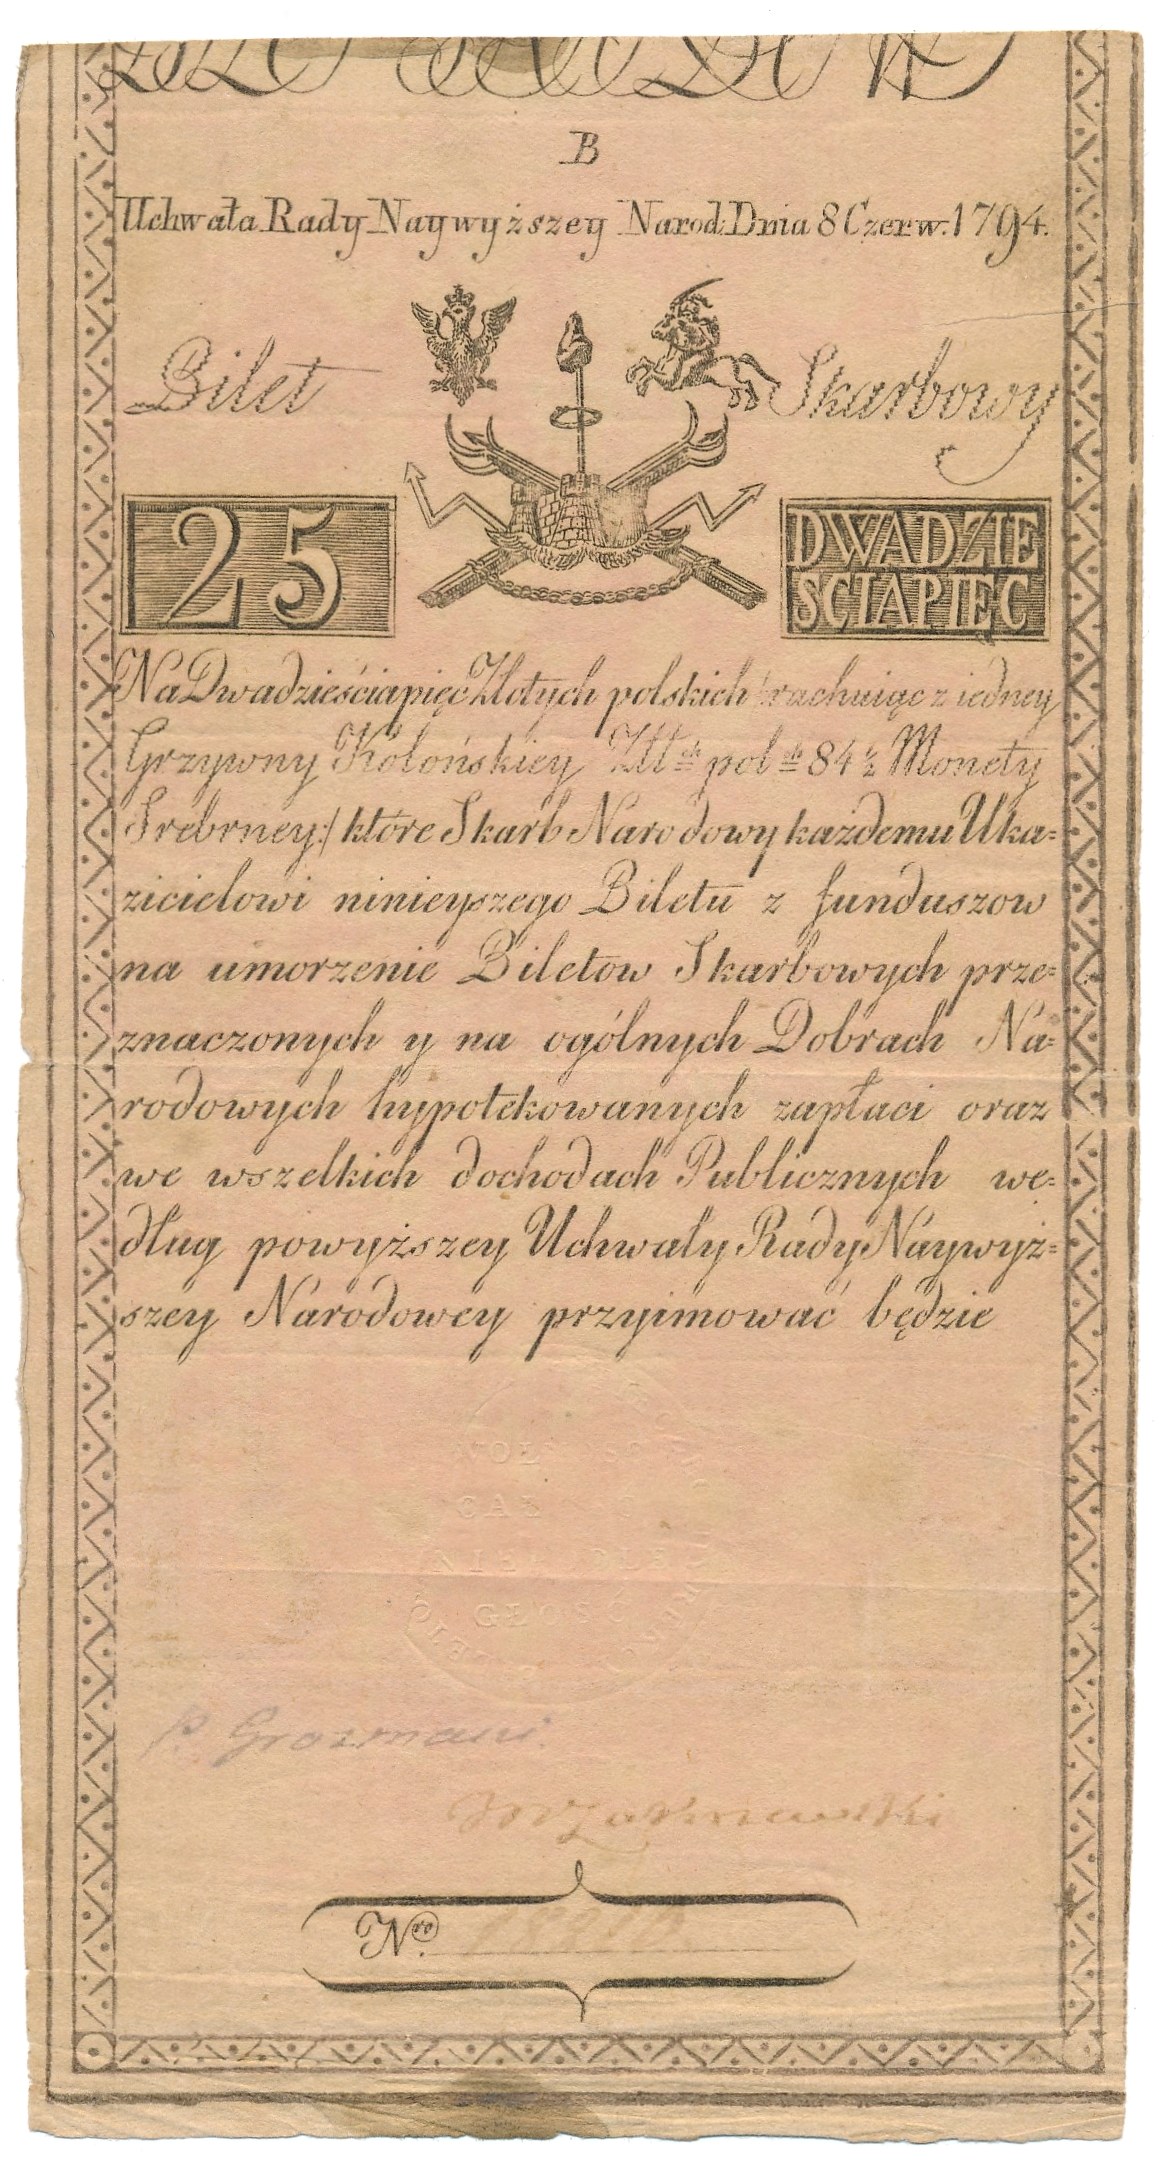 B
Uchwała Rady Naywyższey Narod: Dnia 8 Czerw. 1794.
Bilet Skarbowy
25
DWADZIE
SCIAPIĘC
Na Dwadzieściapięć Złotych polskich /:rachuiąc z iedney
Grzywny Kolońskiey Złł:ch pol:ch 84½ Monety
Srebrney:/ które Skarb Narodowy każdemu Uka=
zicielowi ninieyszego Biletu z funduszow
na umorzenie Biletow Skarbowych prze=
znaczonych y na ogólnych Dobrach Na=
rodowych hypotekowanych zapłaci oraz
we wszelkich dochodach Publicznych we=
dług powyższey Uchwały Rady Naywyż=
szey Narodowey przyimować będzie
WOLNOSC
CAŁOSC
NIEPODLE
GŁOSC
Nro.